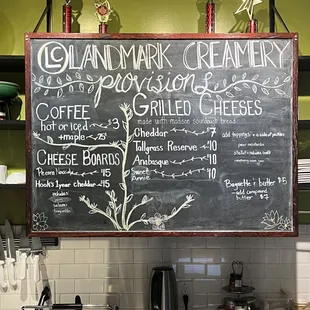 LC LANDMARK CREAMERY
provisions
COFFEE
hot or iced $3
+maple .75
CHEESE BOARDS
Pecora Nocciola 45
Hook's 1 year cheddar 45
includes
GRILLED CHEESES
made with madison sourdough bread
Cheddar $7
Tallgrass Reserve 10
Arabasque 10
Sweet Annie 10
add toppings + a side of pickles
Baguette & butter $5
add compound butter $7